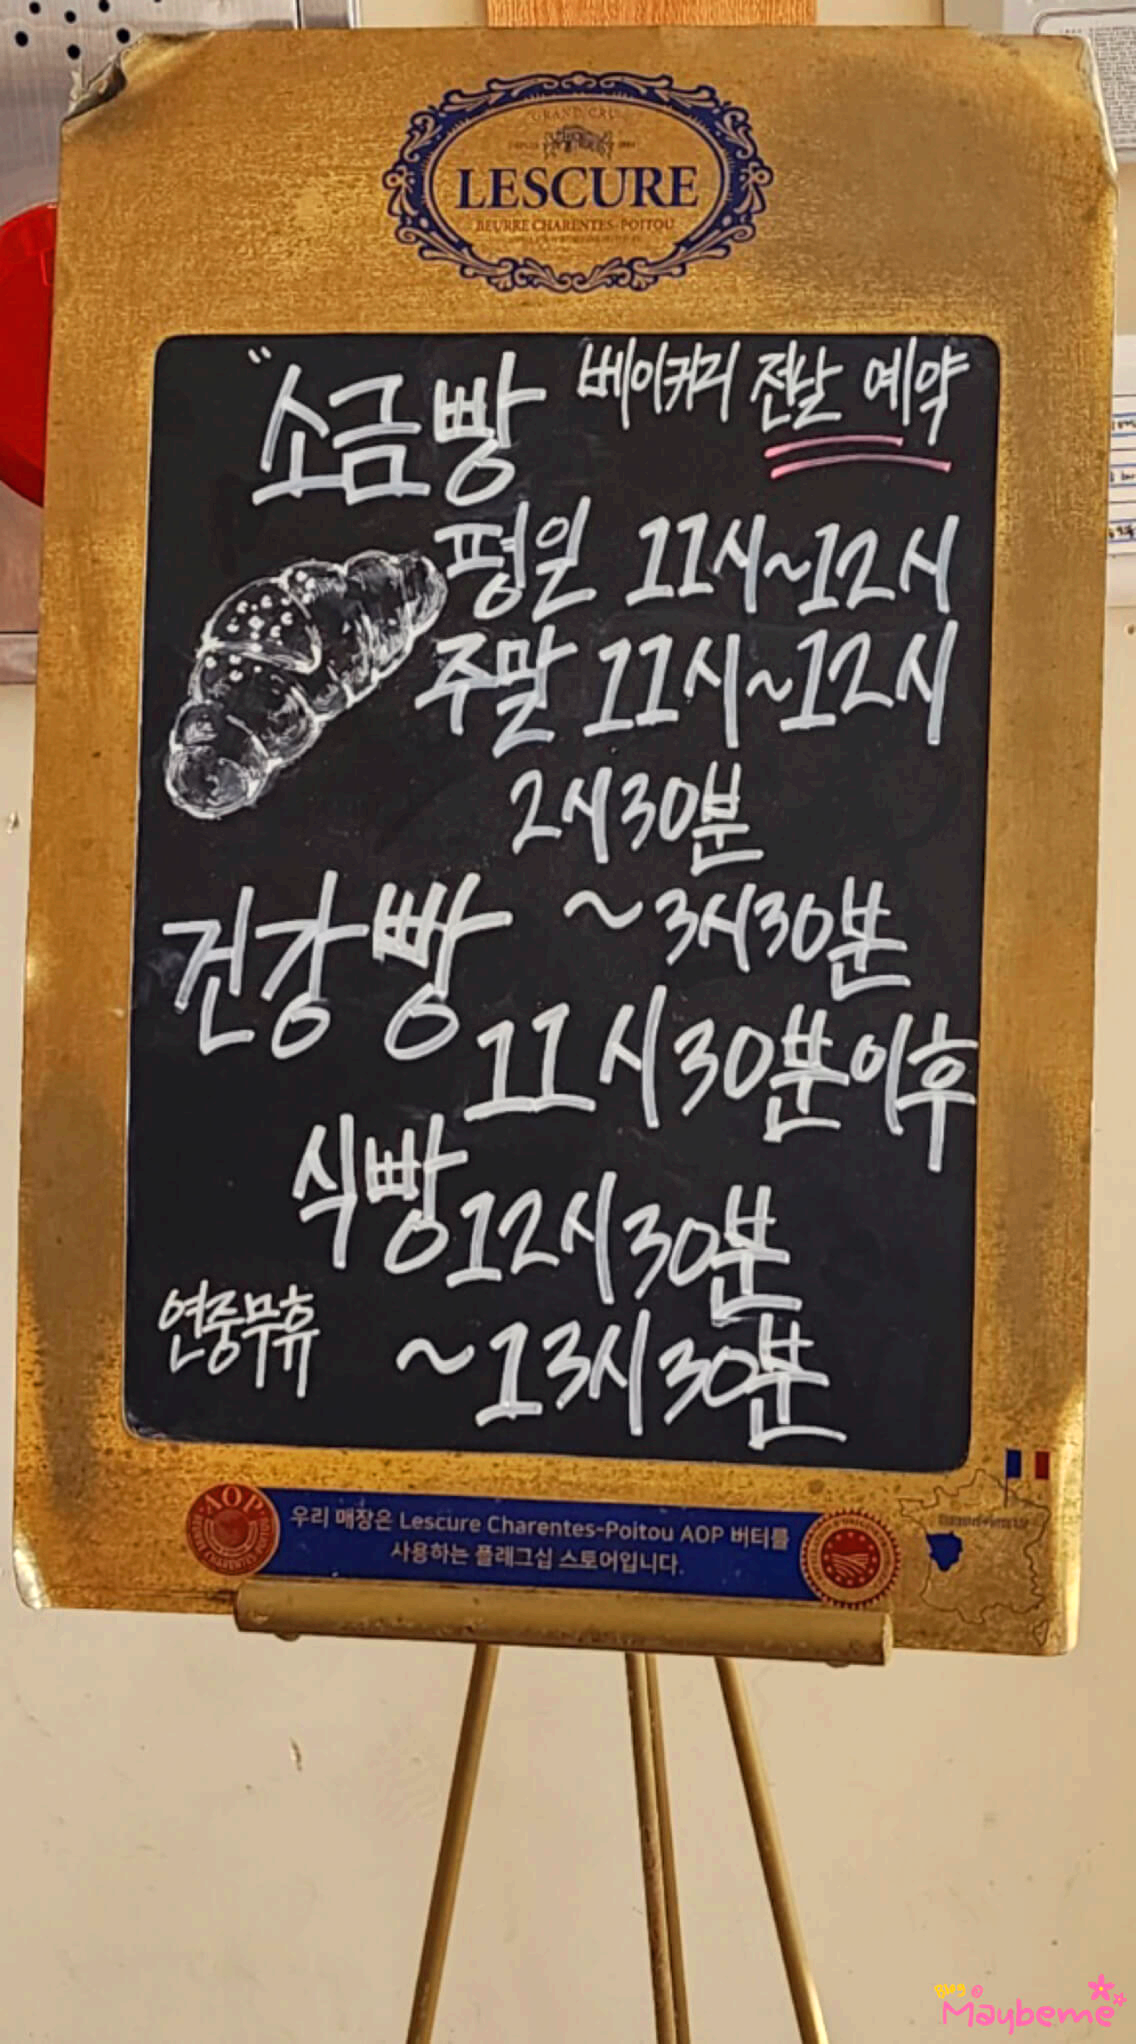 GRAND CRU
LESCURE
BEURRE CHARENTES-POITOU
"소금빵 베이커리 전날 예약
평일 11시~12시
주말 11시~12시
2시30분
~3시30분
건강빵
11시30분이후
식빵 12시30분
~13시30분
연중무휴
AOP
우리 매장은 Lescure Charentes-Poitou AOP 버터를
사용하는 플래그십 스토어입니다.
Maybeme